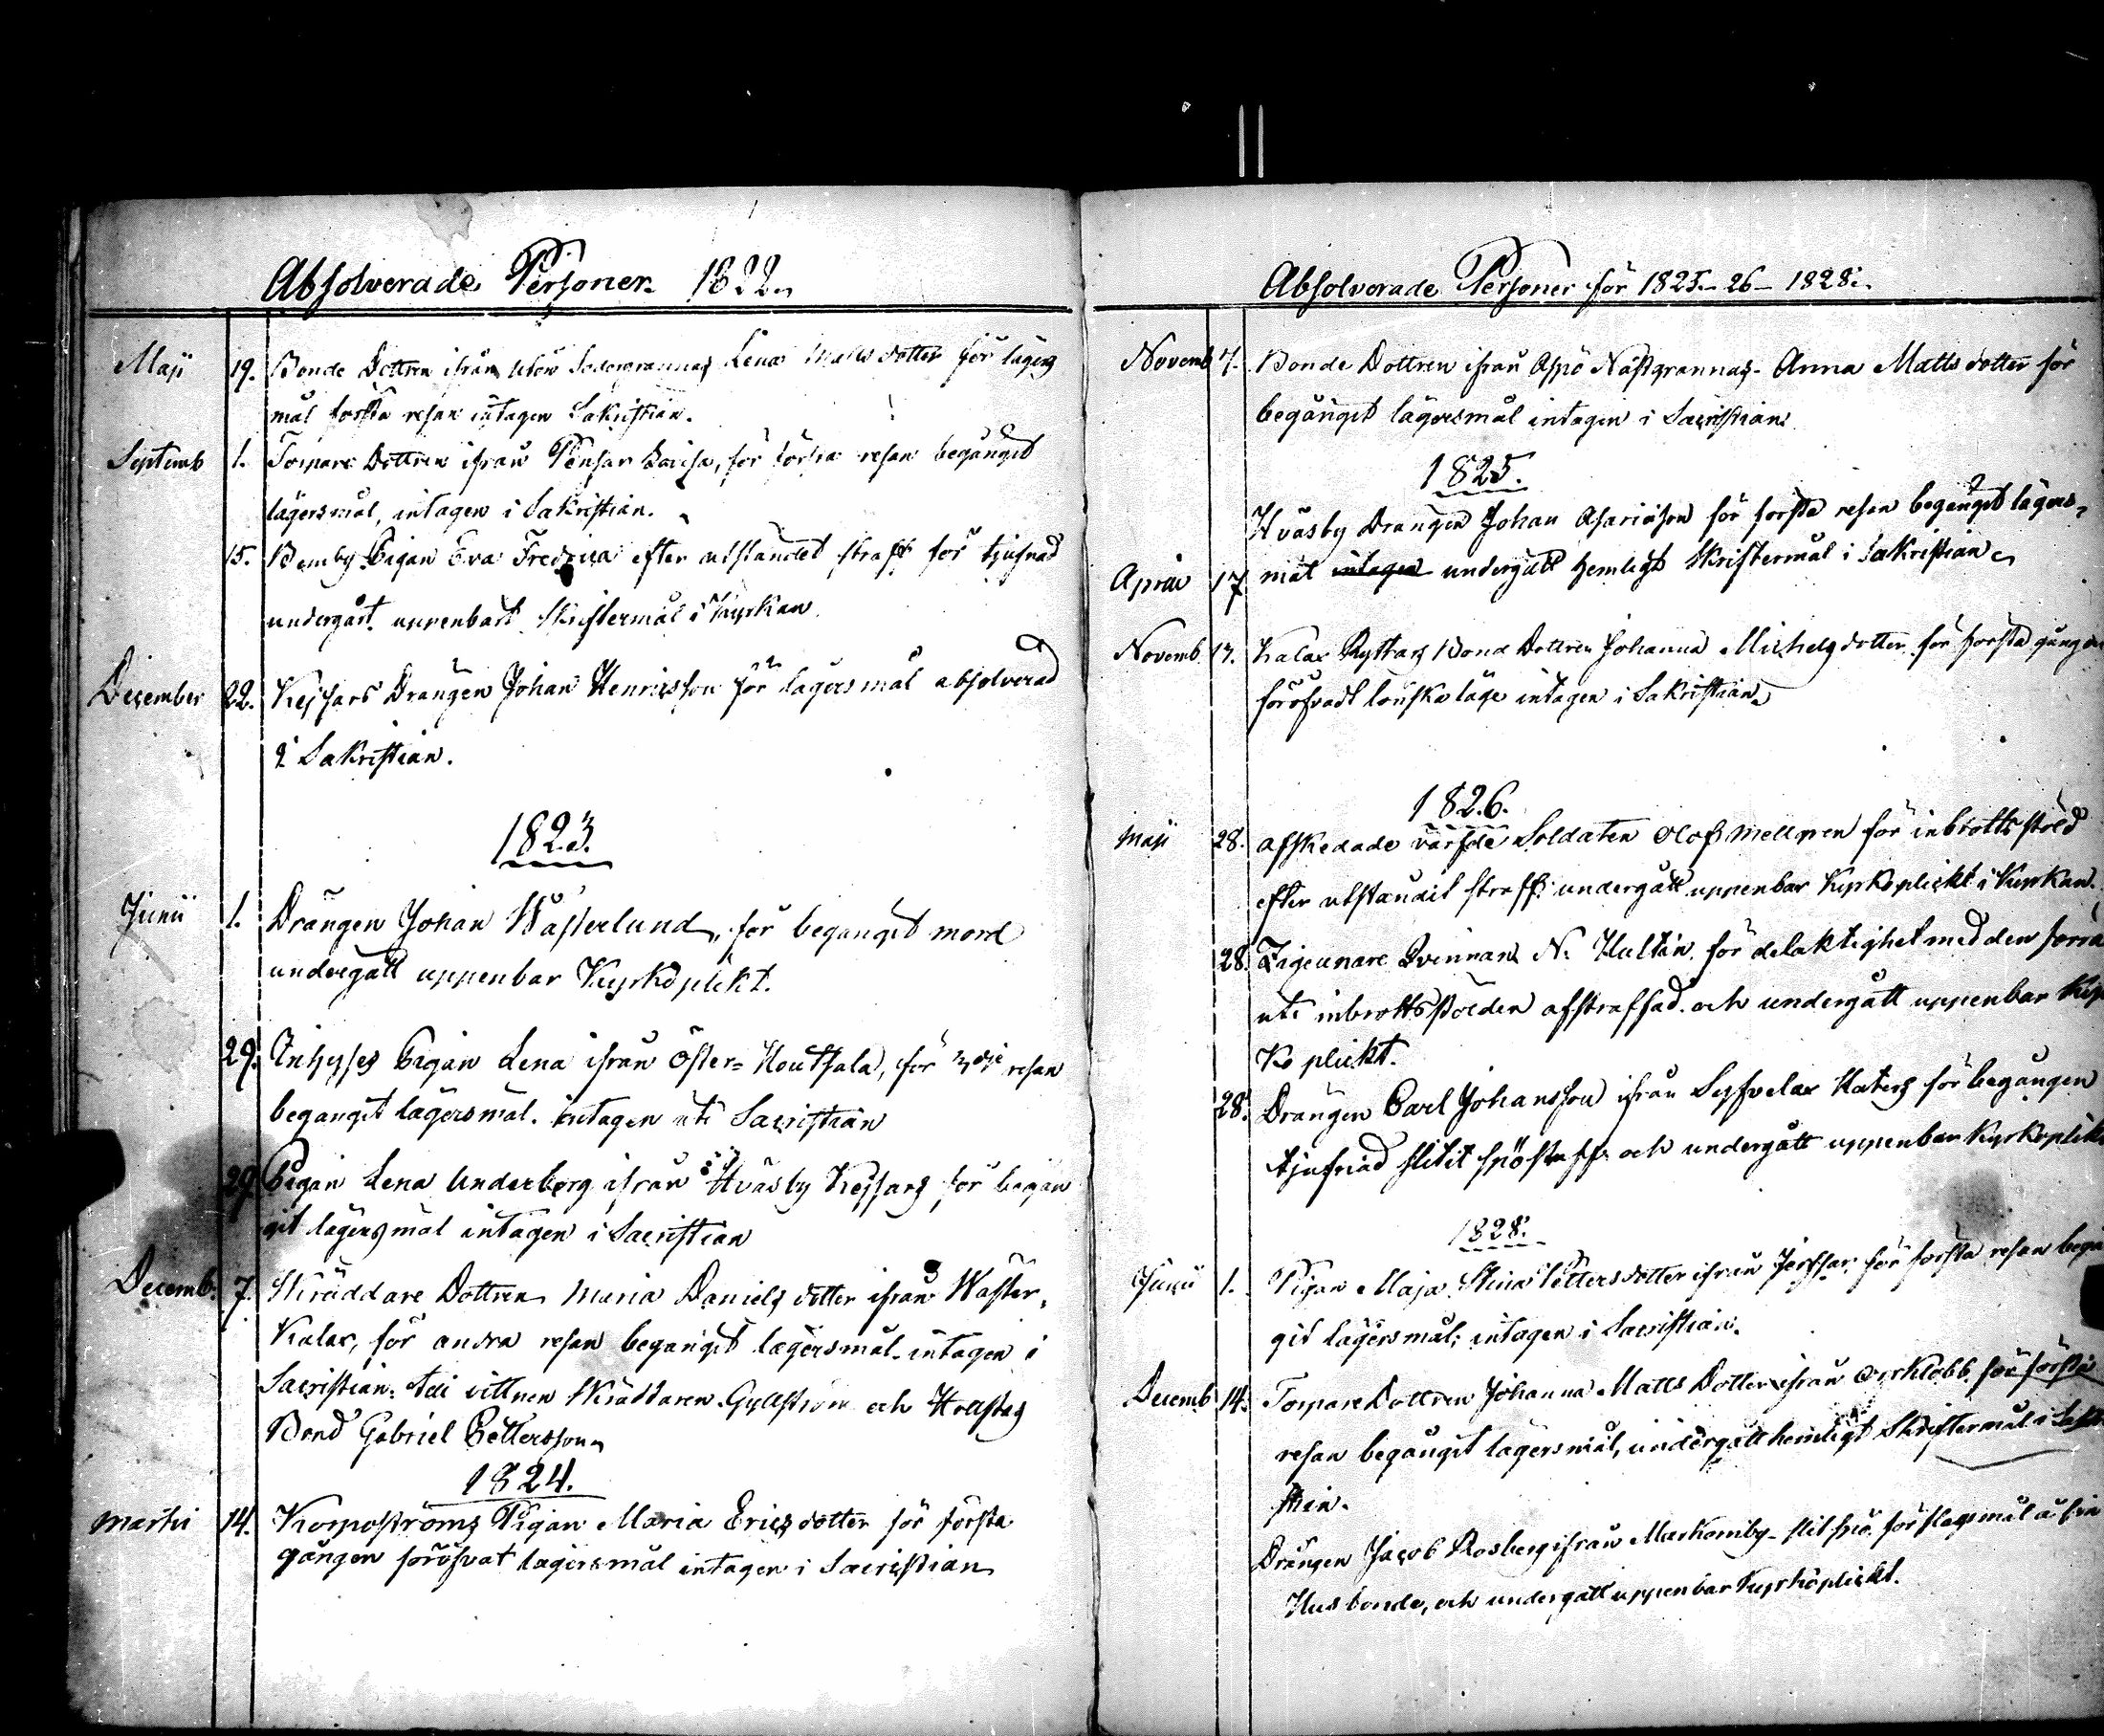 Absolverade Personer. 1822.
Maji 19. Bonde Dottren ifrån Utön Södergrannas Lena Matts dotter för lägers
mål första resan intagen Sakristian.
Septemb 1. Torpare Dottren ifrån Pensar Lovisa, för första resan begånget
lägersmål, intagen i Sakristian.
15. Bemby Pigan Eva Fredrica efter utståndet straff för tjufnad
undergåt uppenbart Skriftermål i Kyrkan.
December 22. Kejsars Drängen Johan Henricsson för lägersmål absolverad
i Sakristian.
1823.
Junii 1. Drängen Johan Wästerlund, för begångit mord
undergått uppenbar Kyrkoplikt.
29. Inhyses Pigan Lena ifrån Öster-Houtsala, för 3dje resan
begångit lägersmål. intagen uti Sacristian
29 Pigan Lena Underberg ifrån Hväsby Kejsars för begån
git lägersmål intagen i Sacristian
Decemb. 7. Skräddare Dottren Maria Daniels dotter ifrån Wäster-
Kalax, för andra resan begångit lägersmål. intagen i
Sacristian. vittnen Skräddaren Gyllström och
Bond Gabriel Pettersson
1824.
Martii 14. Korpoströms Pigan Maria Erics dotter för första
gången föröfvat lägersmål intagen i Sacristian
Absolverade Personer för 1825-26-1828.
Novemb 7. Bonde Dottren ifrån Aspö Nästgrannas Anna Matts dotter för
begånget lägersmål intagen i Sacristian.
1825.
Hväsby Drängen Johan för första resan begånget lägers-
April 17 mål intagen undergått hemligt Skriftermål i Sakristian
Novemb. 17. Kalax Ryttars Bond Dottren Johanna Michels dotter för första gången
föröfvadt lönska läge intagen i Sakristian
1826.
Maji 28. afskedade Soldaten Olof Mellgren för inbrottsstöld
efter utståndit straff undergått uppenbar Kyrkoplickt i Kyrkan.
28. Zigeunare Qvinnan N. Hultin för delaktighet med den förra
uti inbrottsstölden afstraffad. och undergått uppenbar Kyr
Ko plickt.
28. Drängen Carl Johansson ifrån för begången
tjufnad slitit spöstraff och undergått uppenbar Kyrkoplikt
1828.
Junii 1. Pigan Maja Stina Petters dotter ifrån för första resan begån
git lägersmål; intagen i Sacristian.
Decemb 14. Torpare Dottren Johanna Matts Dotter ifrån för första
resan begångit lägersmål, undergått hemligt Skriftermål i Sakri
stian.
Drängen Jacob Rosberg ifrån Markomby slit spö för slagsmål å sin
Husbonde, och undergått uppenbar Kyrkoplickt.